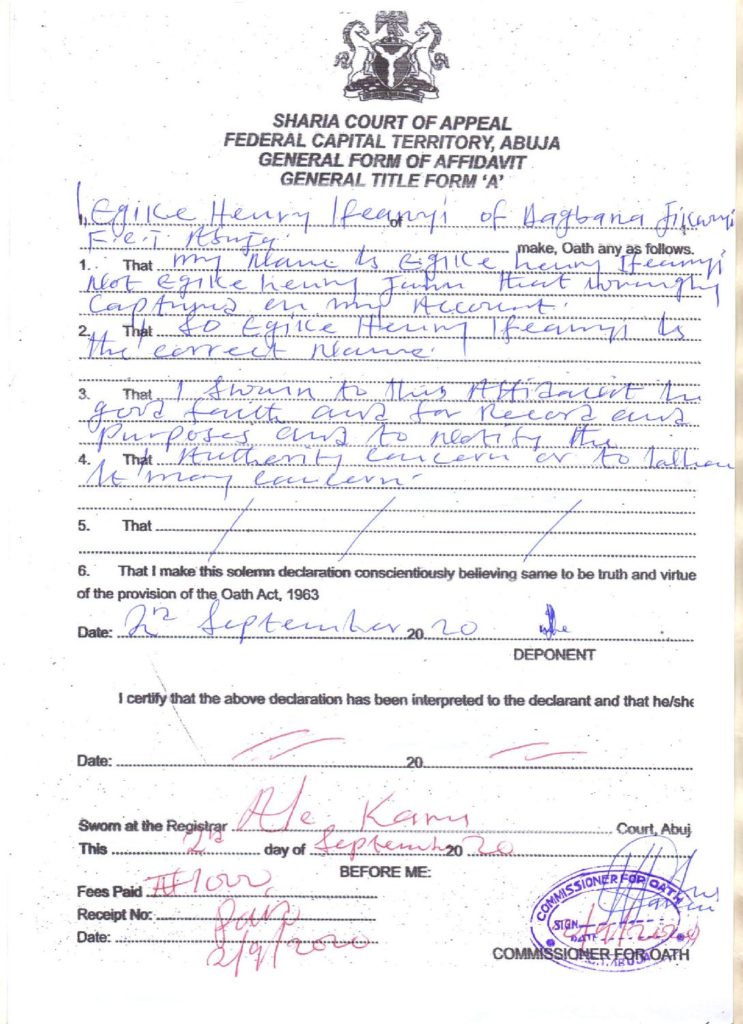 SHARIA COURT OF APPEAL
FEDERAL CAPITAL TERRITORY, ABUJA
GENERAL FORM OF AFFIDAVIT
GENERAL TITLE FORM 'A'
I, Egike Henry Ifeanyi of Dagbana Jikwoyi
F.C.T Abuja. make, Oath any as follows.
1. That my Name is Egike henry Ifeanyi
Not Egike henry that wrongly
Captured on my Account.
2. That so Egike Henry Ifeanyi is
the correct Name.
3. That I sworn to this Affidavit in
good faith and for Record and
purposes and to Notify the
4. That Authority concern or to
it may concern.
5. That
6. That I make this solemn declaration conscientiously believing same to be truth and virtue
of the provision of the Oath Act, 1963
Date: 2nd September 2020
DEPONENT
I certify that the above declaration has been interpreted to the declarant and that he/she
Date: 20
Sworn at the Registrar Karu Court, Abuj
This 2nd day of September 2020
BEFORE ME:
Fees Paid ₦1000
Receipt No:
Date: 2/9/2020
COMMISSIONER FOR OATH
SIGN
DATE
ABUJA
COMMISSIONER FOR OATH